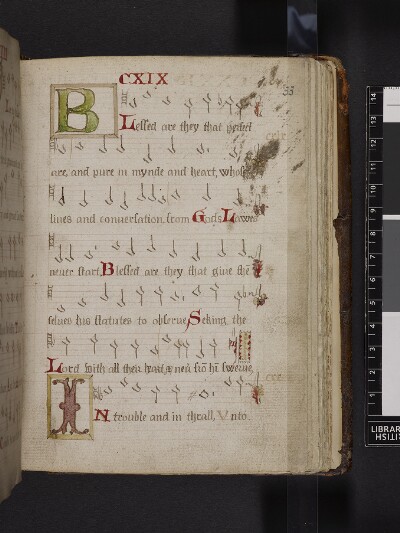 CXIX
33
BLessed are they that perfect
are, and pure in mynde and heart, whose
lines and conuersation from Gods Lawes
neuer start. Blessed are they that giue the
selues his statutes to obserue, Seking the
Lord with all their heart & neu fro swerue
IN trouble and in thrall, Vnto
14
13
12
11
10
9
8
7
6
5
4
3
2
1
LIBRAR
BRITISH